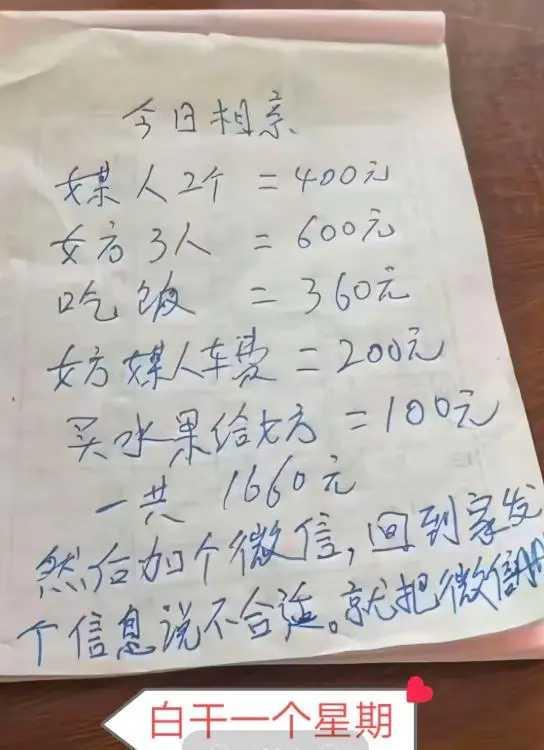 今日相亲
媒人2个 = 400元
女方3人 = 600元
吃饭 = 360元
女方媒人车费 = 200元
买水果给女方 = 100元
一共 1660元
然后加个微信,回到家发
个信息说不合适。就把微信
白干一个星期